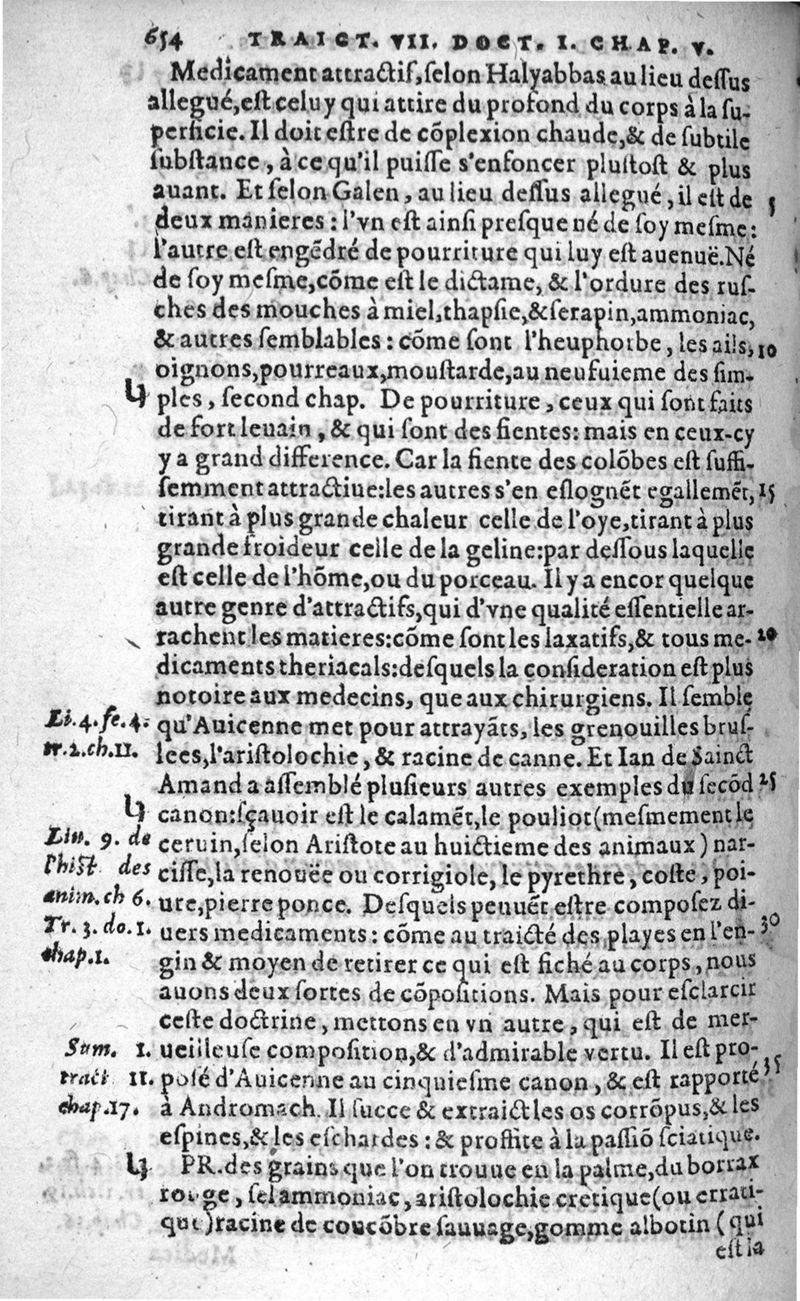 654 TRAICT. VII. DOCT. I. CHAP. V.
Medicament attractif, ſelon Halyabbas au lieu deſſus
allegué, eſt celuy qui attire du profond du corps à la ſu-
perficie. Il doit eſtre de cõplexion chaude, & de ſubtile
ſubſtance, à ce qu'il puiſſe s'enfoncer pluſtoſt & plus
auant. Et ſelon Galen, au lieu deſſus allegué, il eſt de 5
deux manieres: l'vn eſt ainſi preſque né de ſoy meſme:
l'autre eſt engẽdré de pourriture qui luy eſt auenuë. Né
de ſoy meſme, cõme eſt le dictame, & l'ordure des ruſ-
ches des mouches à miel, thapſie, & ſerapin, ammoniac,
& autres ſemblables: cõme ſont l'heuphorbe, les ails, 10
oignons, pourreaux, mouſtarde, au neufuieme des ſim-
ples, ſecond chap. De pourriture, ceux qui ſont faits
de fort leuain, & qui ſont des fientes: mais en ceux-cy
y a grand difference. Car la fiente des colõbes eſt ſuffi-
ſemment attractiue: les autres s'en eſlognẽt egallemẽt, 15
tirant à plus grande chaleur celle de l'oye, tirant à plus
grande froideur celle de la geline: par deſſous laquelle
eſt celle de l'hõme, ou du porceau. Il y a encor quelque
autre genre d'attractifs, qui d'vne qualité eſſentielle ar-
rachent les matieres: cõme ſont les laxatifs, & tous me- 20
dicaments theriacals: deſquels la conſideration eſt plus
notoire aux medecins, que aux chirurgiens. Il ſemble
Li. 4. fe. 4. qu'Auicenne met pour attrayãts, les grenouilles bruſ-
tr. 2. ch. 11. lees, l'ariſtolochie, & racine de canne. Et Ian de Sainct
Amand a aſſemblé pluſieurs autres exemples du ſecõd 25
canon: ſçauoir eſt le calamẽt, le pouliot (meſmement le
Liu. 9. de ceruin, ſelon Ariſtote au huictieme des animaux) nar-
l'hiſt des ciſſe, la renouëe ou corrigiole, le pyrethre, coſte, poi-
anim. ch 6. ure, pierre ponce. Deſquels peuuẽt eſtre compoſez di-
Tr. 3. do. 1. uers medicaments: cõme au traicté des playes en l'en- 30
chap. 1. gin & moyen de retirer ce qui eſt fiché au corps, nous
auons deux ſortes de cõpoſitions. Mais pour eſclarcir
ceſte doctrine, mettons en vn autre, qui eſt de mer-
Sum. 1. ueilleuſe compoſition, & d'admirable vertu. Il eſt pro-
tract 11. poſé d'Auicenne au cinquieſme canon, & eſt rapporté 35
chap. 17. à Andromach. Il ſucce & extraict les os corrõpus, & les
eſpines, & les eſchardes: & profite à la paſſiõ ſciatique.
PR. des grains que l'on trouue en la palme, du borrax
rouge, ſel ammoniac, ariſtolochie cretique (ou errati-
que) racine de coucõbre ſauuage, gomme albotin (qui
eſt la